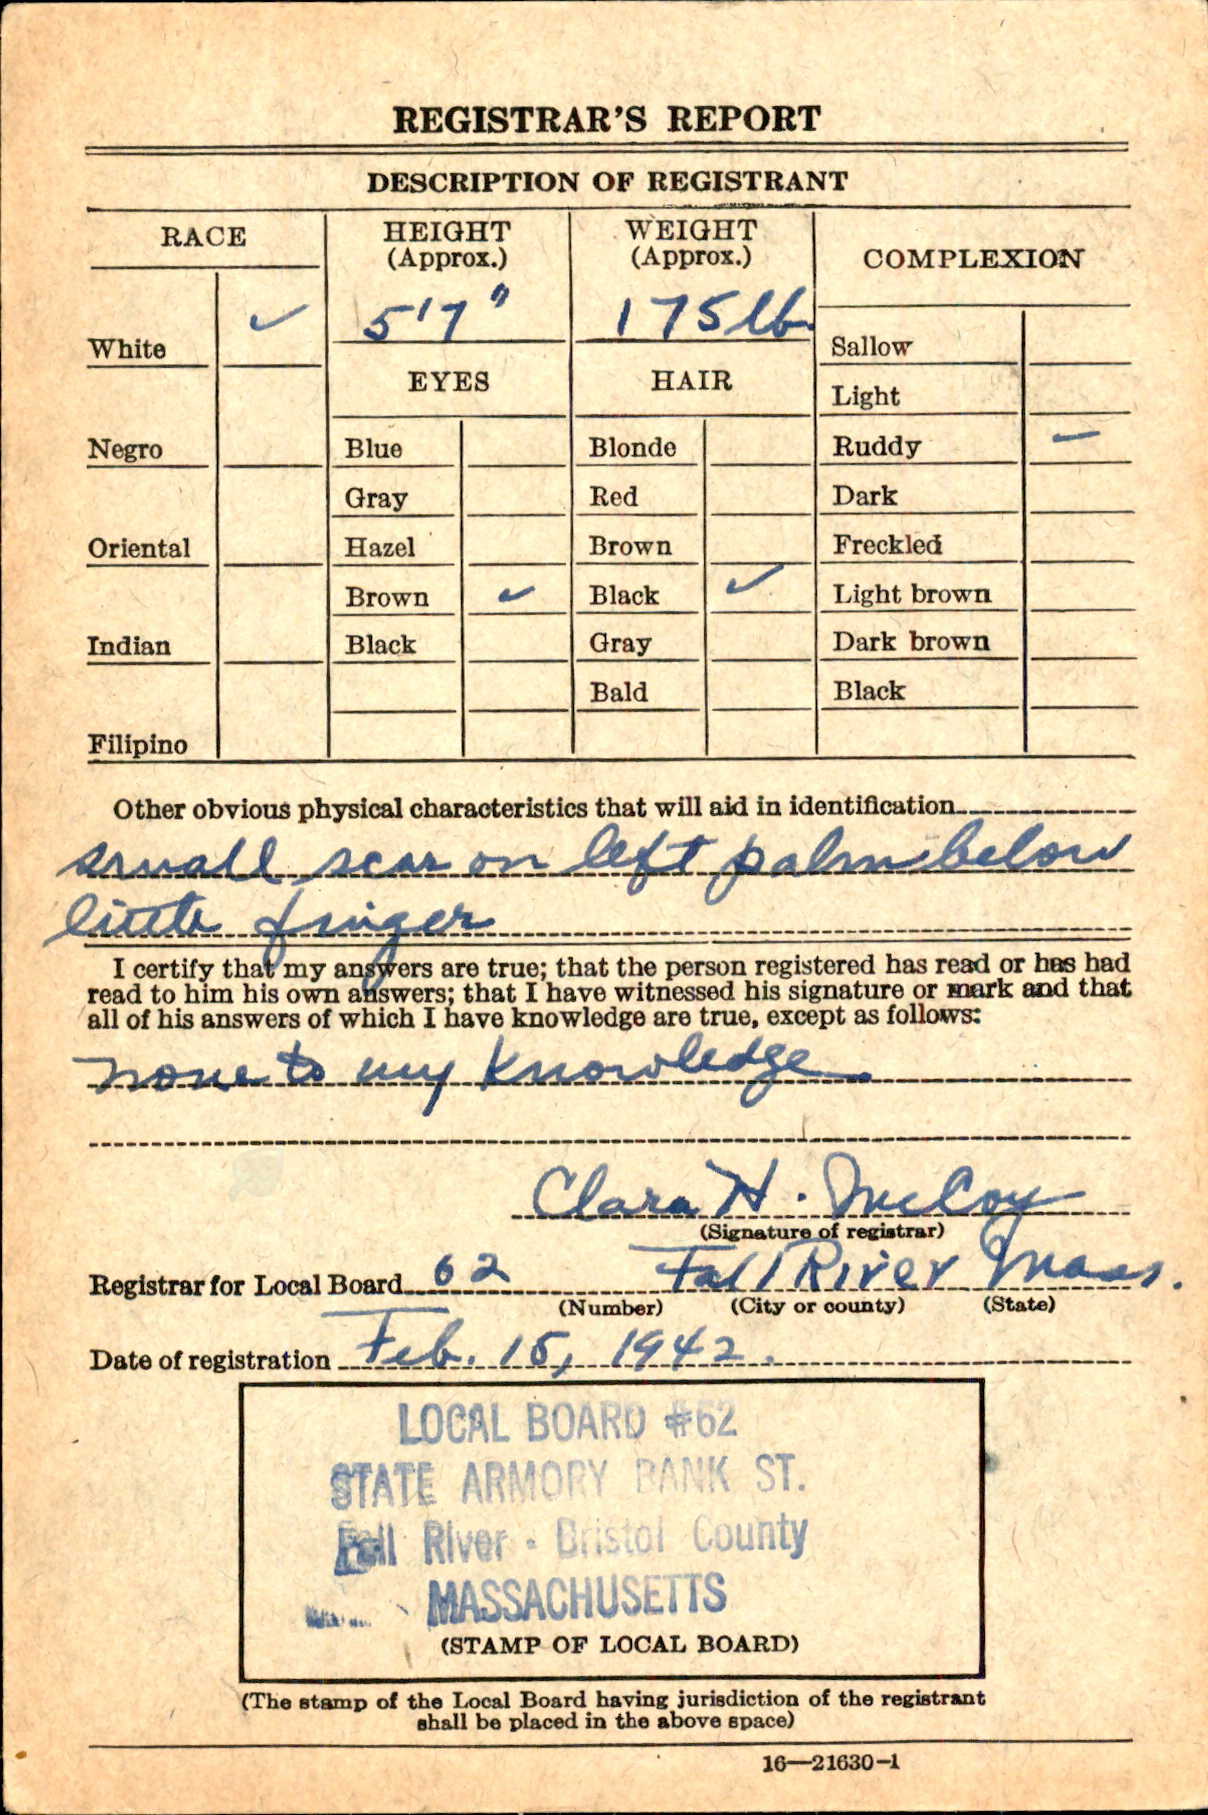 REGISTRAR'S REPORT
DESCRIPTION OF REGISTRANT
RACE
HEIGHT
(Approx.)
WEIGHT
(Approx.)
COMPLEXION
White ✓
5'7"
175 lb.
Sallow
EYES
HAIR
Light
Negro
Blue
Blonde
Ruddy ✓
Gray
Red
Dark
Oriental
Hazel
Brown
Freckled
Brown ✓
Black ✓
Light brown
Indian
Black
Gray
Dark brown
Bald
Black
Filipino
Other obvious physical characteristics that will aid in identification
small scar on left palm below
little finger
I certify that my answers are true; that the person registered has read or has had
read to him his own answers; that I have witnessed his signature or mark and that
all of his answers of which I have knowledge are true, except as follows:
none to my knowledge
Clara H. McCoy
(Signature of registrar)
Registrar for Local Board 62 Fall River Mass.
(Number) (City or county) (State)
Date of registration Feb. 15, 1942.
LOCAL BOARD #62
STATE ARMORY BANK ST.
Fall River - Bristol County
MASSACHUSETTS
(STAMP OF LOCAL BOARD)
(The stamp of the Local Board having jurisdiction of the registrant
shall be placed in the above space)
16—21630-1